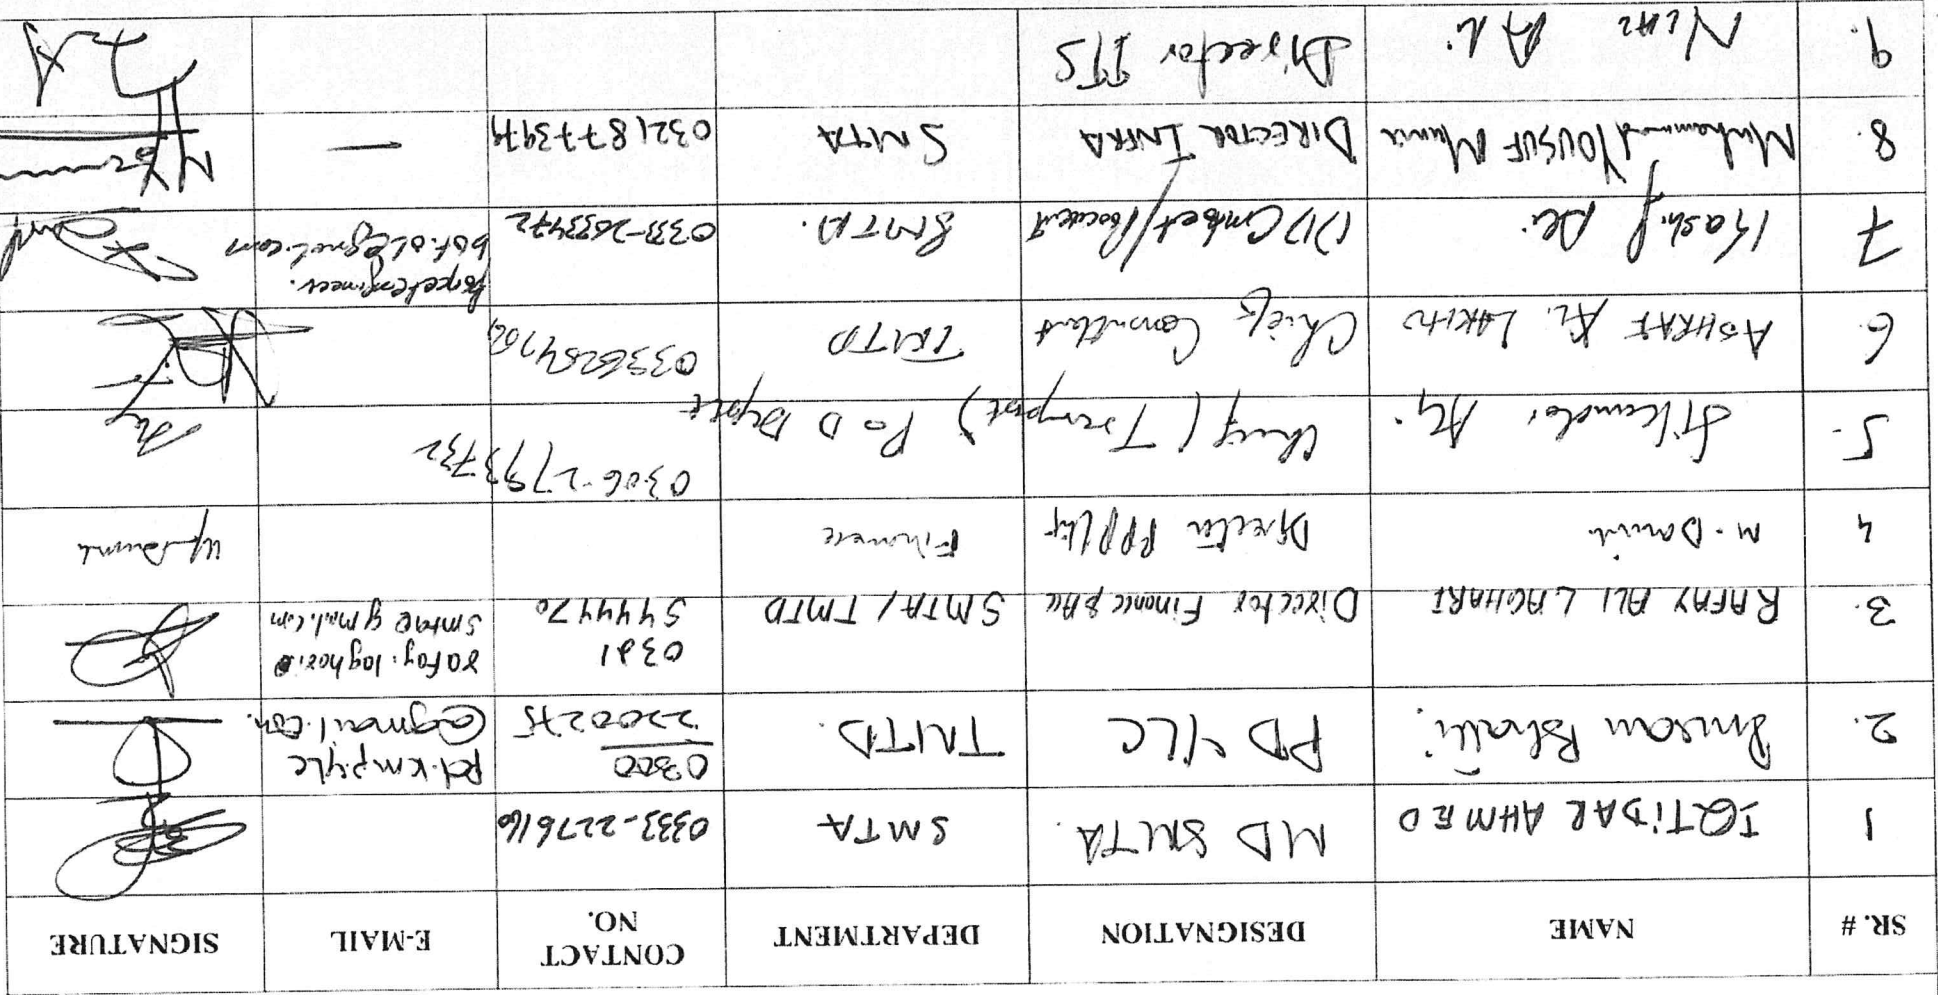 SR. # NAME DESIGNATION DEPARTMENT CONTACT NO. E-MAIL SIGNATURE
1 IQTiDAR AHMED MD SMTA. SMTA 0333-2276160
2. Imran Bhatti. PD YLC TMTD. 0300 2200275 Pd.kmpylc @gmail.com.
3. RAFAY ALI LAGHARI Director Finance & Acc SMTA/TMTD 0301 5444470 rafay.laghari smta@gmail.com
4 M. Danish Director PPP Finance
5. Sikander Ali. Chief (Transport) P&D Deptt 0306-2793732
6. ASHRAF Chief Consultant TMTD
7 Kashif Ali DD SMTA. 0333-2633472
8. Muhammad YOUSUF Munir DIRECTOR INFRA SMTA 03218773979 —
9. Niaz Ali. Director ITS